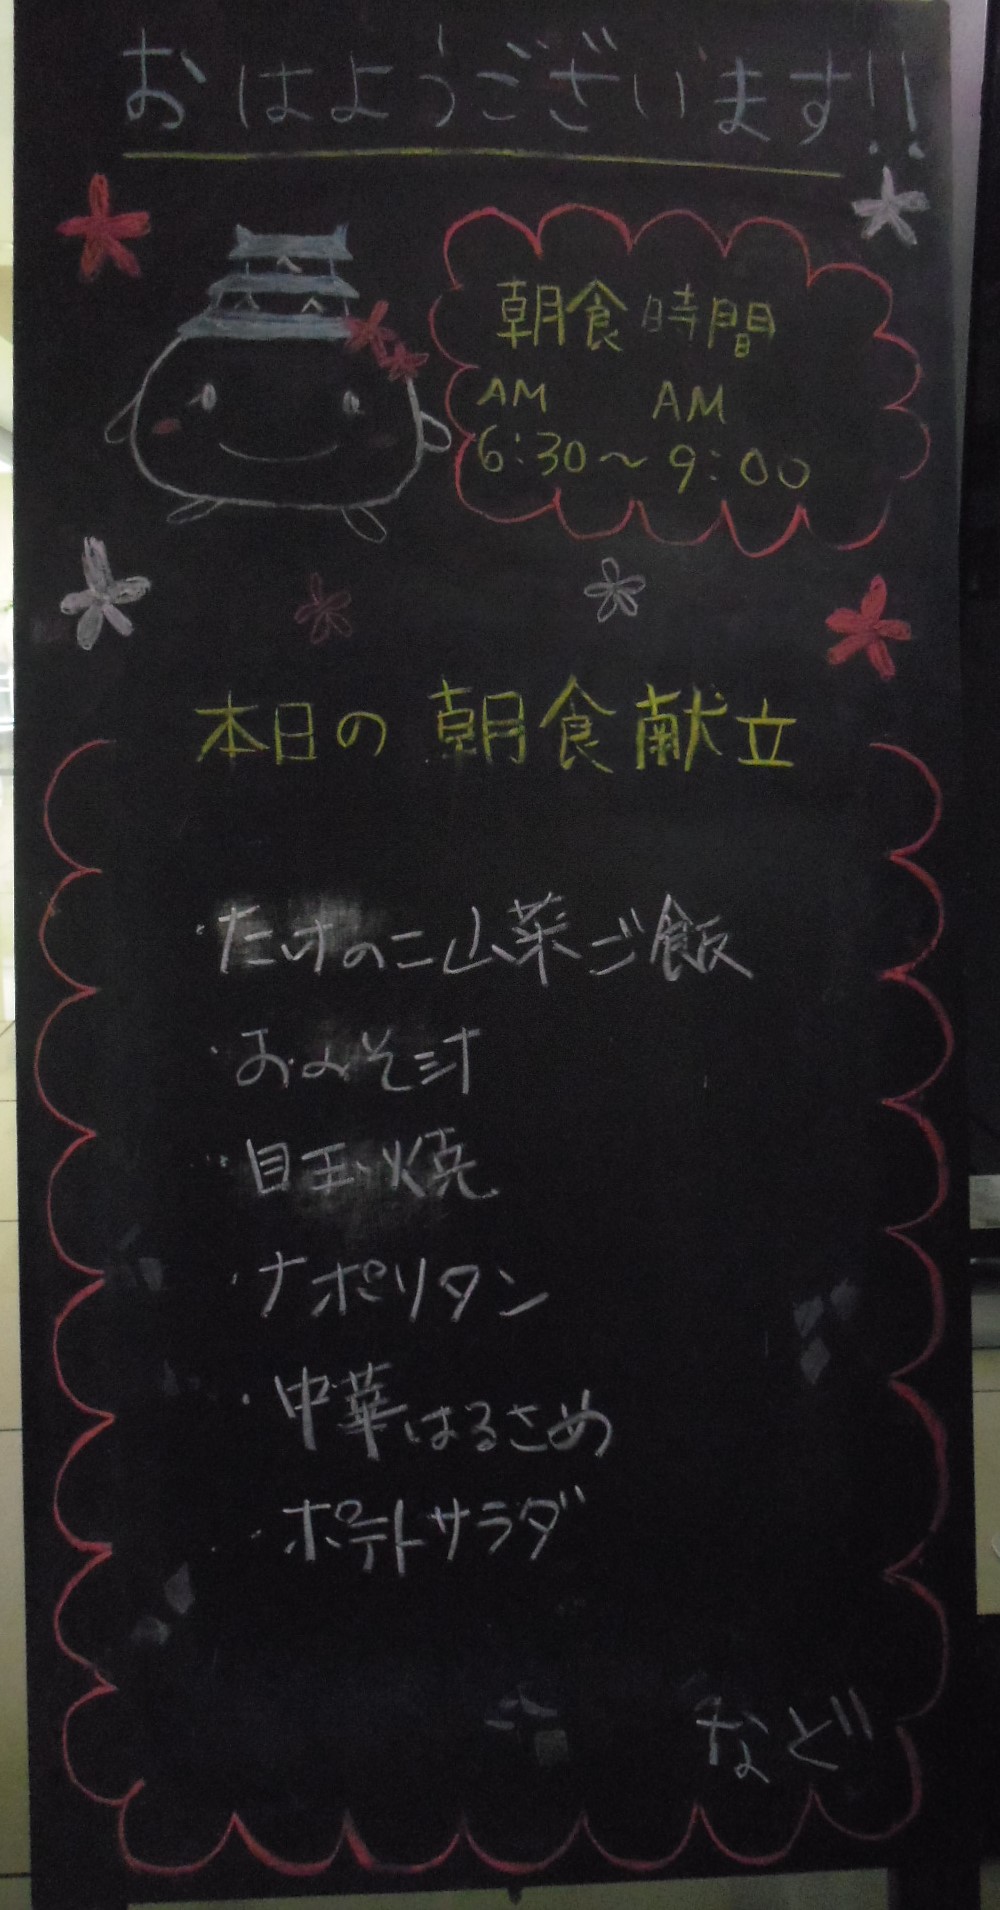 おはようございます!!
朝食時間
AM AM
6:30〜9:00
本日の朝食献立
・たけのこ山菜ご飯
・おみそ汁
・目玉焼
・ナポリタン
・中華はるさめ
・ポテトサラダ
など